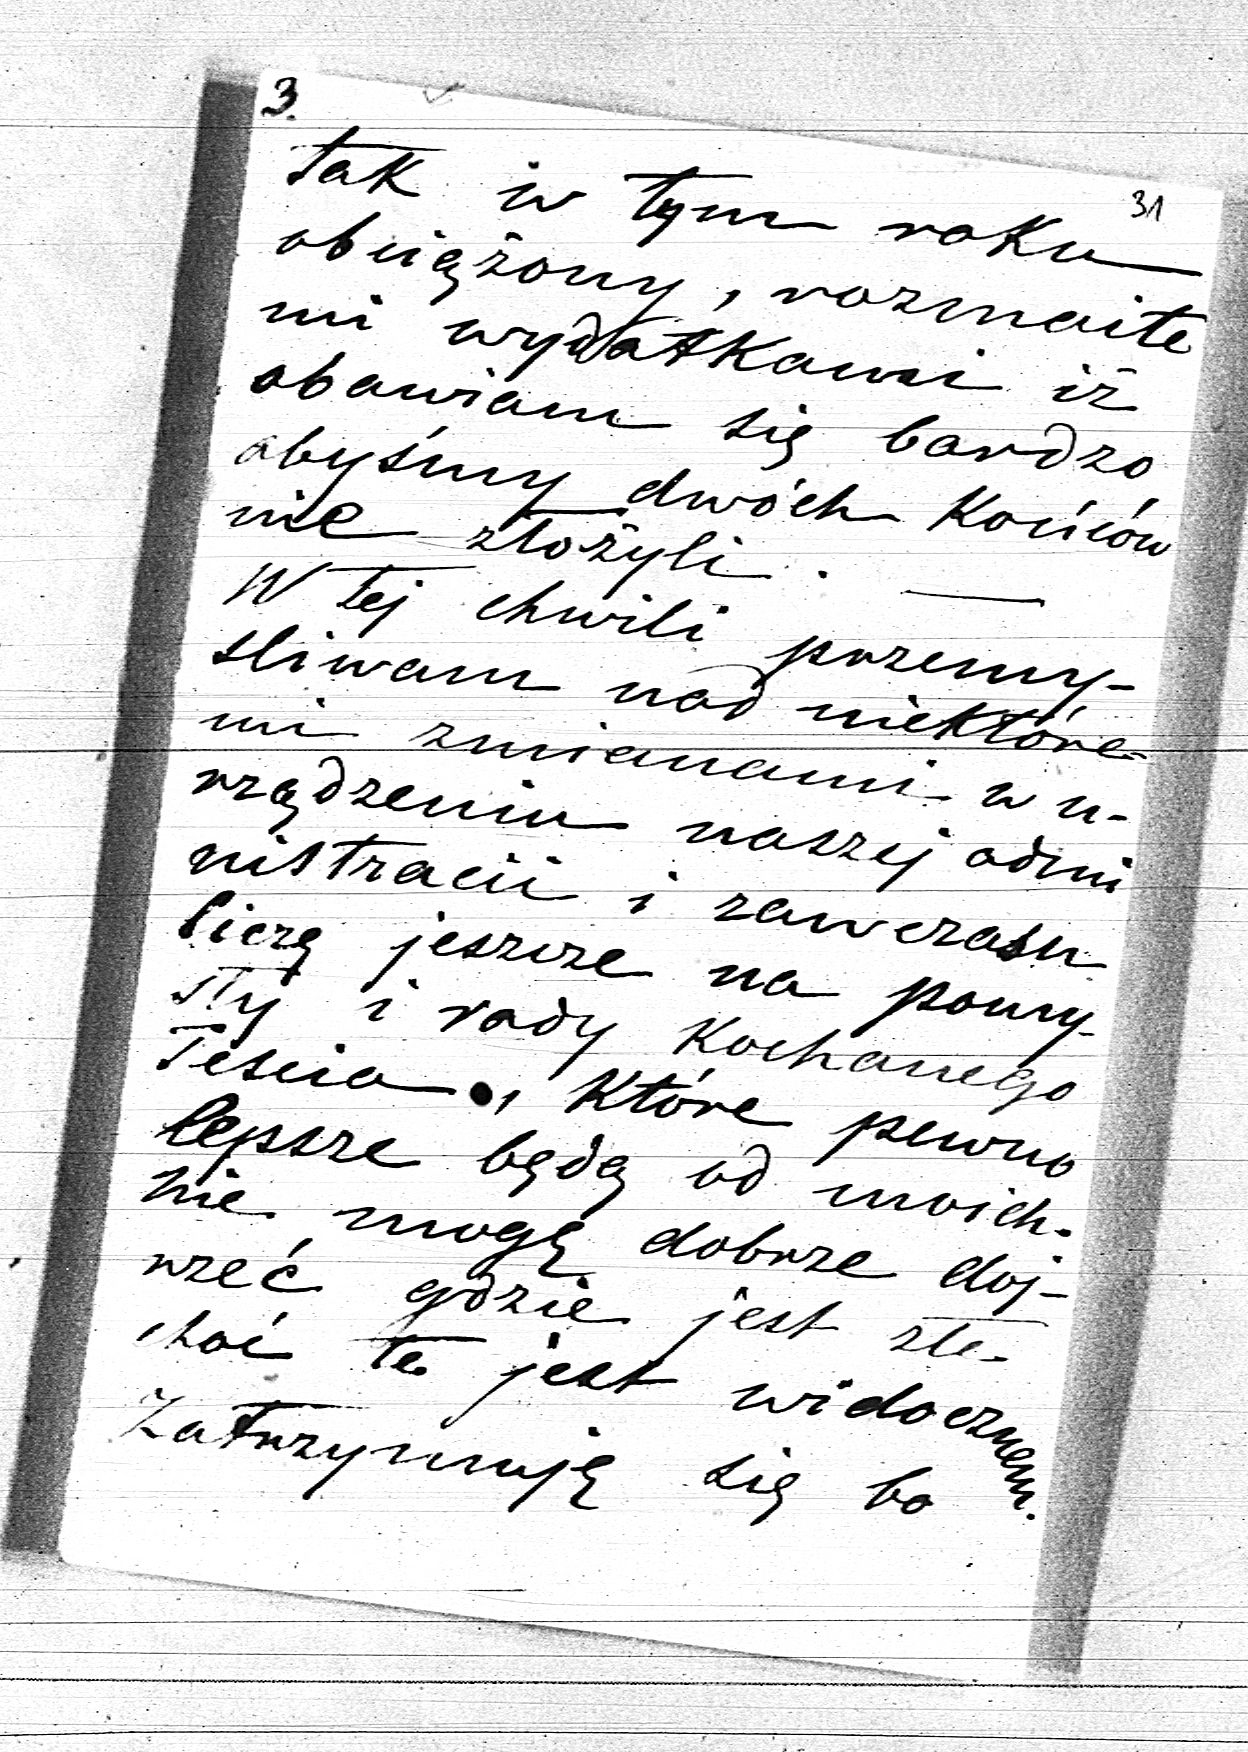 3.
31
tak iw tym roku
obciążony, rozmaite
mi wydatkami iż
obawiam się bardzo
abyśmy dwóch końców
nie złożyli. —
W tej chwili przemy-
śliwam nad niektóre-
mi zmianami w u-
rządzeniu naszej admi
nistracii i zawczasu
liczę jeszcze na pomy-
sły i rady Kochanego
Teścia, które pewno
lepsze będą od moich.
Nie mogę dobrze doj-
rzeć gdzie jest złe.
choć te jest widocznem.
Zatrzymuję się bo